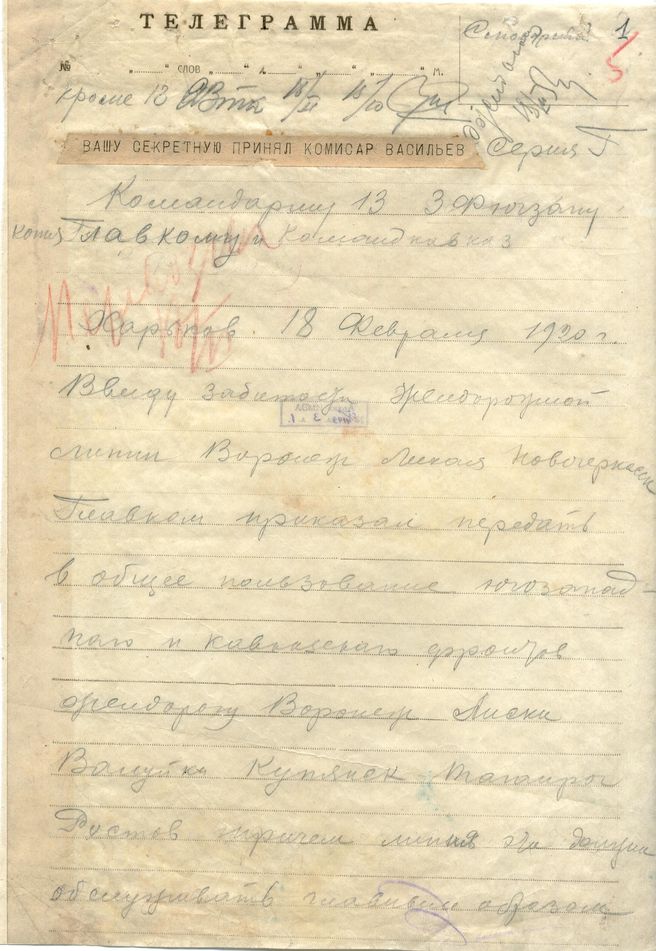 ТЕЛЕГРАММА
1
№ „ “ слов „ “ „ “ м.
5
кроме 12
ВАШУ СЕКРЕТНУЮ ПРИНЯЛ КОМИСАР ВАСИЛЬЕВ
Серия Г
Командарму 13
копия Главкому и Командкавказ
Харьков 18 Февраля 1920 г.
Ввиду забитости железнодорожной
линии Воронеж Лихая Новочеркасск
Главком приказал передать
в общее пользование югозапад-
ного и кавказского фронтов
желдорогу Воронеж Лиски
Валуйки Купянск Таганрог
Ростов причем линия эта должна
обслуживать главным образом